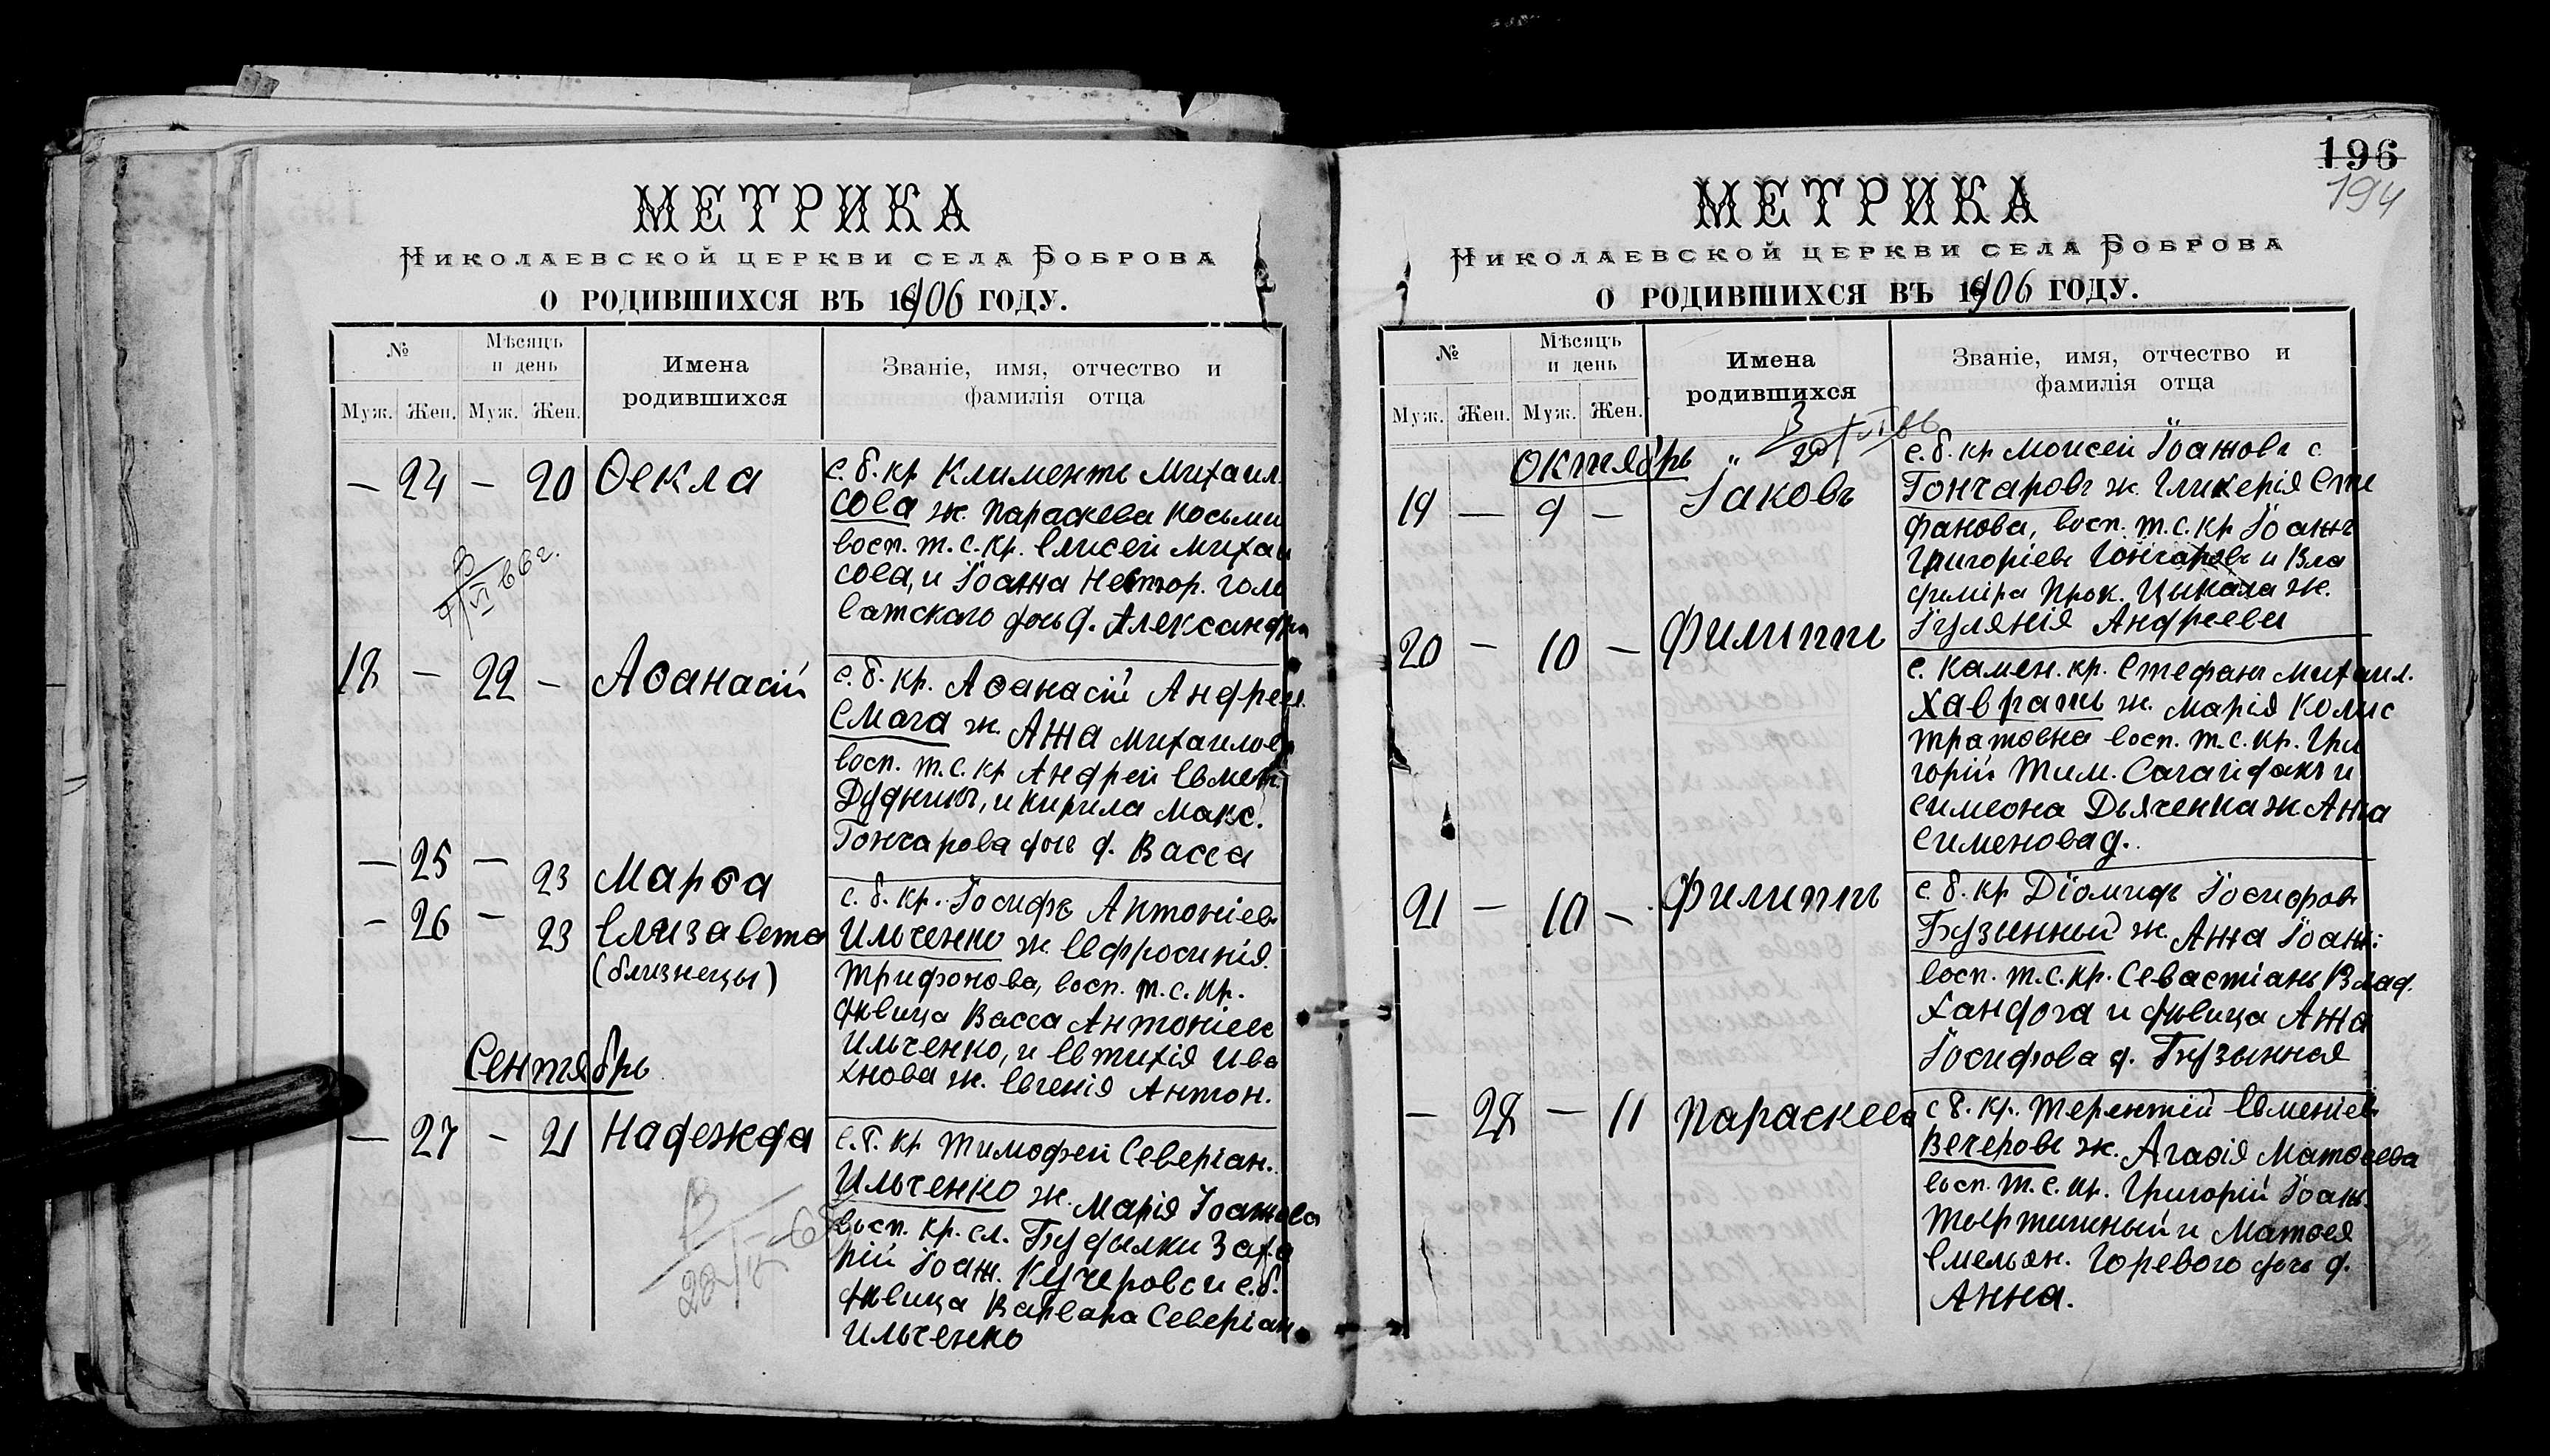 МЕТРИКА
Николаевской церкви села Боброва
О РОДИВШИХСЯ ВЪ 1906 ГОДУ.
№
Мѣсяцъ и день
Имена родившихся
Званіе, имя, отчество и фамилія отца
Муж. Жен. Муж. Жен.
— 24 — 20 Ѳекла
с. б. кр Климентъ Михаил.
Сова ж. Параскева Косьми
восп. т. с. кр. Елисей Михаи
Сова, и Іоанна Нестор. Голо
ватскаго дочь д. Александра
18 — 22 — Аѳанасій
с. б. кр. Аѳанасій Андреев.
Смага ж. Анна Михаилов
восп. т. с. кр Андрей Евмен.
Дудникъ, и Кирила Макс.
Гончарова дочь д. Васса
— 25 — 23 Марѳа
— 26 — 23 Елизавета
(близнецы)
с. б. кр. Іосифъ Антоніев
Ильченко ж. Евфросинія
Трифонова, восп. т. с. кр.
дѣвица Васса Антоніев
Ильченко, и Евтихія Ива
хнова ж. Евгенія Антон.
Сентябрь
— 27 — 21 Надежда
с. б. кр Тимофей Северіан.
Ильченко ж. Марія Іоаннова
восп. кр. сл. Будылки Заха
рій Іоан. Кучеровъ и с. б.
дѣвица Варвара Северіан.
Ильченко
196
194
МЕТРИКА
Николаевской церкви села Боброва
О РОДИВШИХСЯ ВЪ 1906 ГОДУ.
№
Мѣсяцъ и день
Имена родившихся
Званіе, имя, отчество и фамилія отца
Муж. Жен. Муж. Жен.
Октябрь
19 — 9 — Іаковъ
с. б. кр Моисей Іоанновъ
Гончаровъ ж. Гликерія Сте
фанова, восп. т. с. кр Іоаннъ
Григоріевъ Гончаровъ и Вла
диміра Прок. Цыкала ж.
Іуліянія Андреева
20 — 10 — Филиппъ
с. Камен. кр. Стефанъ Михаил.
Хавратъ ж. Марія Калис
тратовна восп. т. с. кр. Гри
горій Тим. Сагайдакъ и
Симеона Дьяченка ж Анна
Сименова д.
21 — 10 — Филиппъ
с. б. кр Діомидъ Іосифовъ
Бузынный ж. Анна Іоан:
восп. т. с. кр. Севастіанъ Влад.
Хандога и дѣвица Анна
Іосифова д. Бузынная
— 28 — 11 Параскева
с б. кр. Терентій Евменіев
Вечеровъ ж. Агаѳія Матѳеева
восп. т. с. кр. Григорій Іоан.
и Матѳея
Емельян. Горевого дочь д.
Анна.